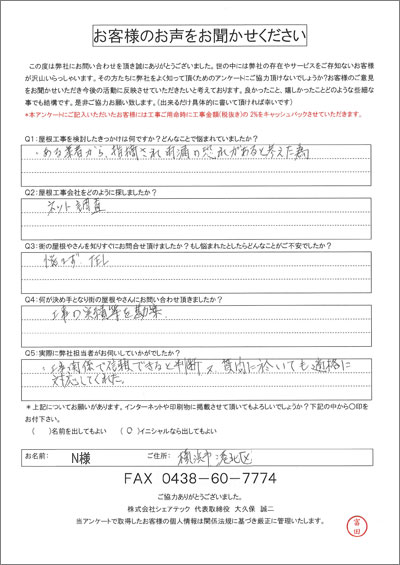 お客様のお声をお聞かせください
この度は弊社にお問い合わせを頂き誠にありがとうございました。世の中には弊社の存在やサービスをご存知ないお客様
が沢山いらっしゃいます。その方たちに弊社をよく知って頂くためのアンケートにご協力頂けないでしょうか?お客様のご意見
をお聞かせいただき今後の活動に反映させていただきたいと考えております。良かったこと、嬉しかったことどのような些細な
事でも結構です。是非ご協力お願い致します。(出来るだけ具体的に書いて頂ければ幸いです)
*本アンケートにご記入いただいたお客様には工事ご用命時に工事金額(税抜き)の2%をキャッシュバックさせていただきます。
Q1:屋根工事を検討したきっかけは何ですか?どんなことで悩まれていましたか?
・ある業者から、指摘され雨漏の恐れがあると考えた為
Q2:屋根工事会社をどのように探しましたか?
ネット調査
Q3:街の屋根やさんを知りすぐにお問合せ頂けましたか?もし悩まれたとしたらどんなことがご不安でしたか?
悩まず、TEL
Q4:何が決め手となり街の屋根やさんにお問い合わせ頂きましたか?
工事の実績等を勘案
Q5:実際に弊社担当者がお伺いしていかがでしたか?
・工事関係で信頼できると判断 又、質問に於いても適格に
対応してくれた。
*上記についてお願いがあります。インターネットや印刷物に掲載させて頂いてもよろしいでしょうか?下記の中から〇印を
お付下さい。
( )名前を出してもよい (○)イニシャルなら出してもよい
お名前: N様 ご住所: 横浜市港北区
FAX 0438-60-7774
ご協力ありがとうございました。
株式会社シェアテック 代表取締役 大久保 誠二
当アンケートで取得したお客様の個人情報は関係法規に基づき厳正に管理いたします。
富田